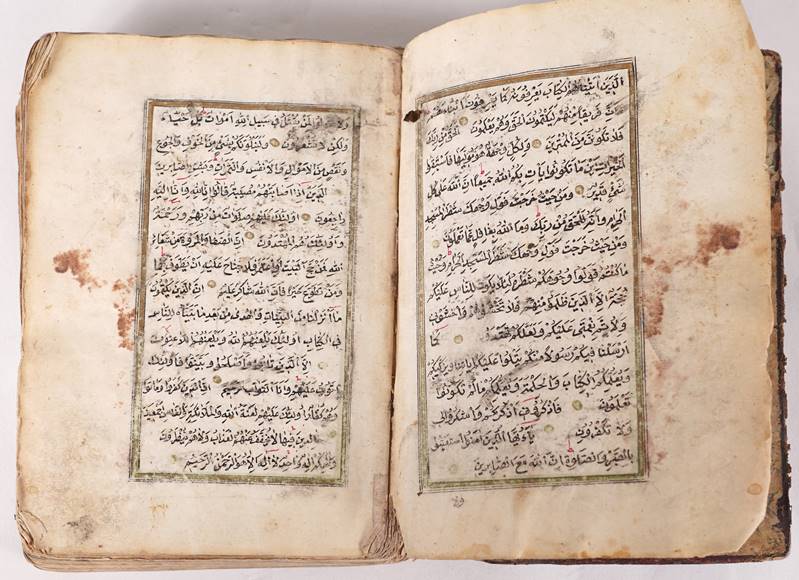 الذين اتيناهم الكتاب يعرفونه كما يعرفون ابناءهم
وان فريقا منهم ليكتمون الحق وهم يعلمون الحق من ربك
فلا تكونن من الممترين ولكل وجهة هو موليها فاستبقوا
الخيرات اين ما تكونوا يأت بكم الله جميعا ان الله على كل
شئ قدير ومن حيث خرجت فول وجهك شطر المسجد
الحرام وانه للحق من ربك وما الله بغافل عما تعملون
ومن حيث خرجت فول وجهك شطر المسجد الحرام وحيث
ما كنتم فولوا وجوهكم شطره لئلا يكون للناس عليكم
حجة الا الذين ظلموا منهم فلا تخشوهم واخشوني
ولاتم نعمتي عليكم ولعلكم تهتدون كما
ارسلنا فيكم رسولا منكم يتلوا عليكم اياتنا ويزكيكم
ويعلمكم الكتاب والحكمة ويعلمكم ما لم تكونوا
تعلمون فاذكروني اذكركم واشكروا لي
ولا تكفرون يا ايها الذين امنوا استعينوا
بالصبر والصلوة ان الله مع الصابرين
ولا
ولا تقولوا لمن يقتل في سبيل الله اموات بل احياء
ولكن لا تشعرون ولنبلونكم بشئ من الخوف والجوع
ونقص من الاموال والانفس والثمرات وبشر الصابرين
الذين اذا اصابتهم مصيبة قالوا انا لله وانا اليه
راجعون اولئك عليهم صلوات من ربهم ورحمة
واولئك هم المهتدون ان الصفا والمروة من شعائر
الله فمن حج البيت او اعتمر فلا جناح عليه ان يطوف بهما
ومن تطوع خيرا فان الله شاكر عليم ان الذين يكتمون
ما انزلنا من البينات والهدى من بعد ما بيناه للناس
في الكتاب اولئك يلعنهم الله ويلعنهم اللاعنون
الا الذين تابوا واصلحوا وبينوا فاولئك
اتوب عليهم وانا التواب الرحيم ان الذين كفروا وماتوا
وهم كفار اولئك عليهم لعنة الله والملائكة والناس اجمعين
خالدين فيها لا يخفف عنهم العذاب ولا هم ينظرون
والهكم اله واحد لا اله الا هو الرحمن الرحيم